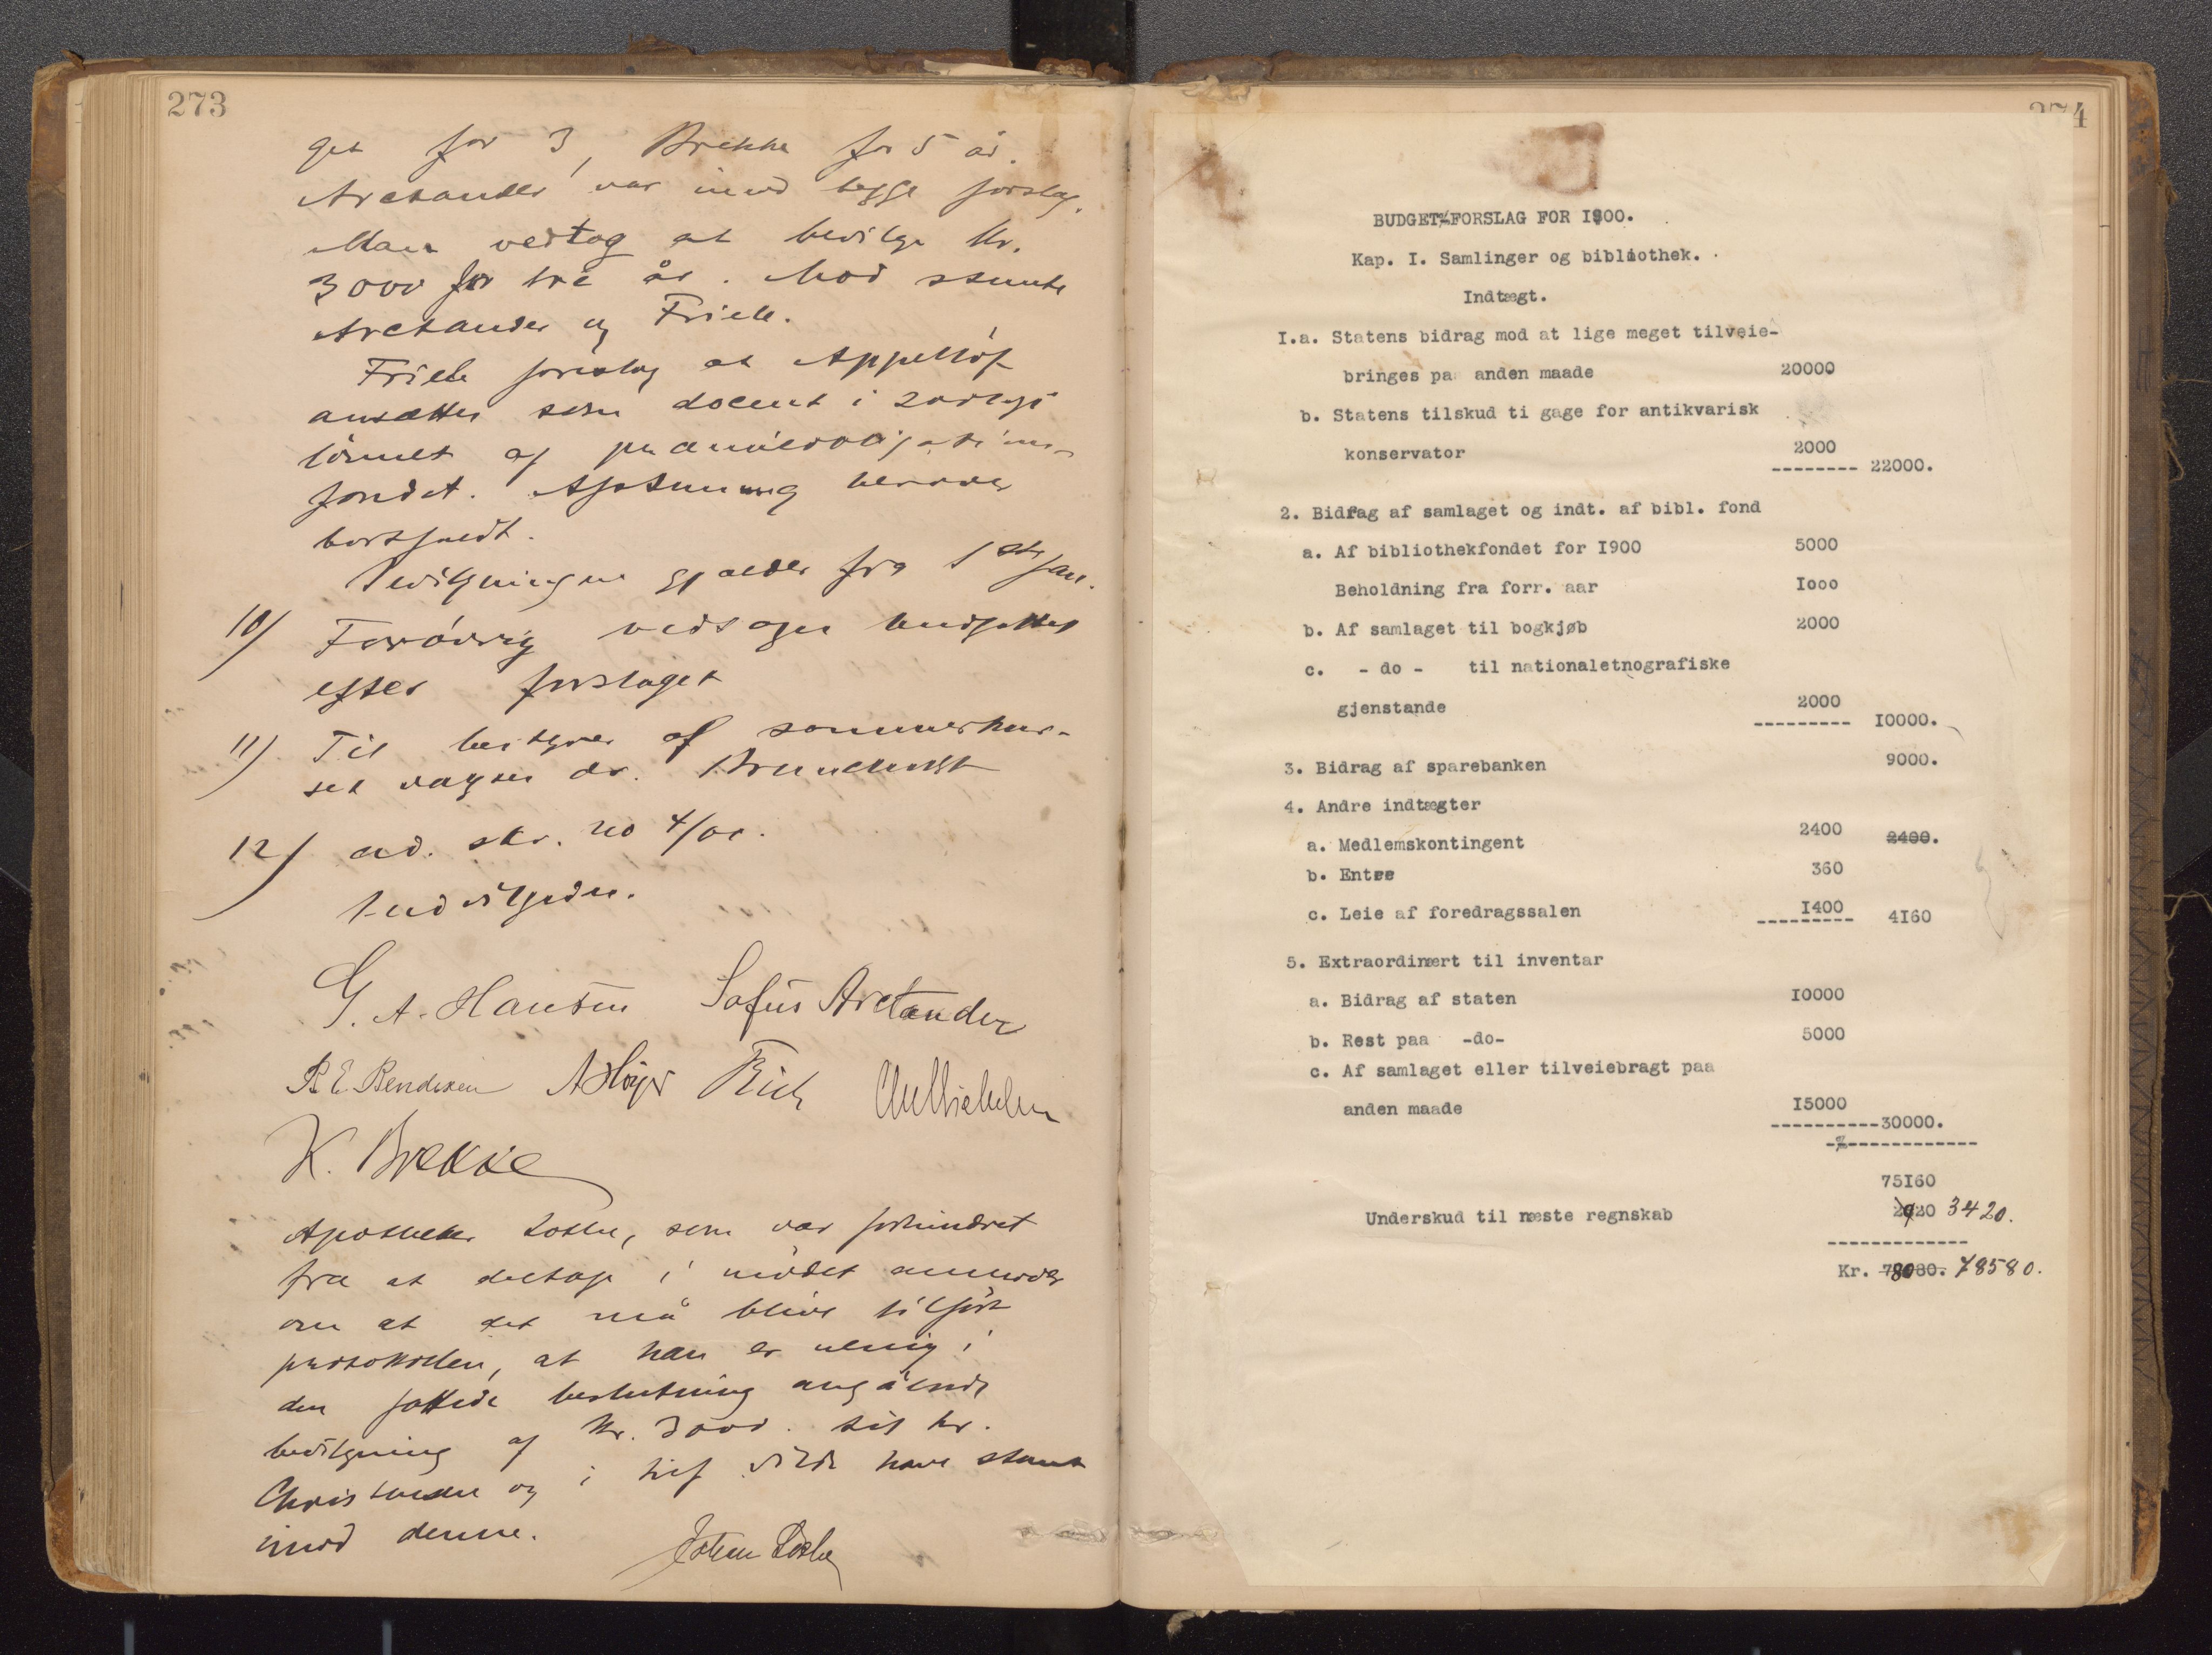 273
get for 3, Brekke for 5 år.
Arctander var imod begge forslag.
Man vedtog at bevilge kr.
3000 for tre år. Mod stemte
Arctander og Friele.
Friele foreslog at Appellöf
ansættes som docent i zoologi
lönnet af præmieobligations-
fondet. Afstemning herover
bortfaldt.
Bevilgningen gjælder fra 1ste jan.
10/ Forövrig vedtoges budgettet
efter forslaget
11) Til bestyrer af sommerkur-
set valgtes dr. Brunchorst
12/ ad. skr. no 4/00.
Indvilgedes.
G. A. Hansen Sofus Arctander
B E Bendixen A Höyer Frich
K. Brekke
Apotheker Lothe, som var forhindret
fra at deltage i mödet anmoder
om at det må blive tilfört
protokollen, at han er uenig i
den fattede beslutning angående
bevilgning af kr. 3000. til hr.
Christensen og i tilf vilde have stemt
imod denne.
Johan Lothe
274
BUDGET-FORSLAG FOR I900.
Kap. I. Samlinger og bibliothek.
Indtægt.
I.a. Statens bidrag mod at lige meget tilveie-
bringes pa anden maade 20000
b. Statens tilskud ti gage for antikvarisk
konservator 2000
-------- 22000.
2. Bidrag af samlaget og indt. af bibl. fond
a. Af bibliothekfondet for I900 5000
Beholdning fra forr. aar Iooo
b. Af samlaget til bogkjøb 2000
c. - do - til nationaletnografiske
gjenstande 2000
--------- I0000.
3. Bidrag af sparebanken 9000.
4. Andre indtægter
a. Medlemskontingent 2400 2400.
b. Entree 360
c. Leie af foredragssalen I400
--------- 4I60
5. Extraordinært til inventar
a. Bidrag af staten I0000
b. Rest paa -do- 5000
c. Af samlaget eller tilveiebragt paa
anden maade I5000
----------30000.
-------------
75I60
Underskud til næste regnskab 2920 3420.
-------------
Kr. 78080. 78580.